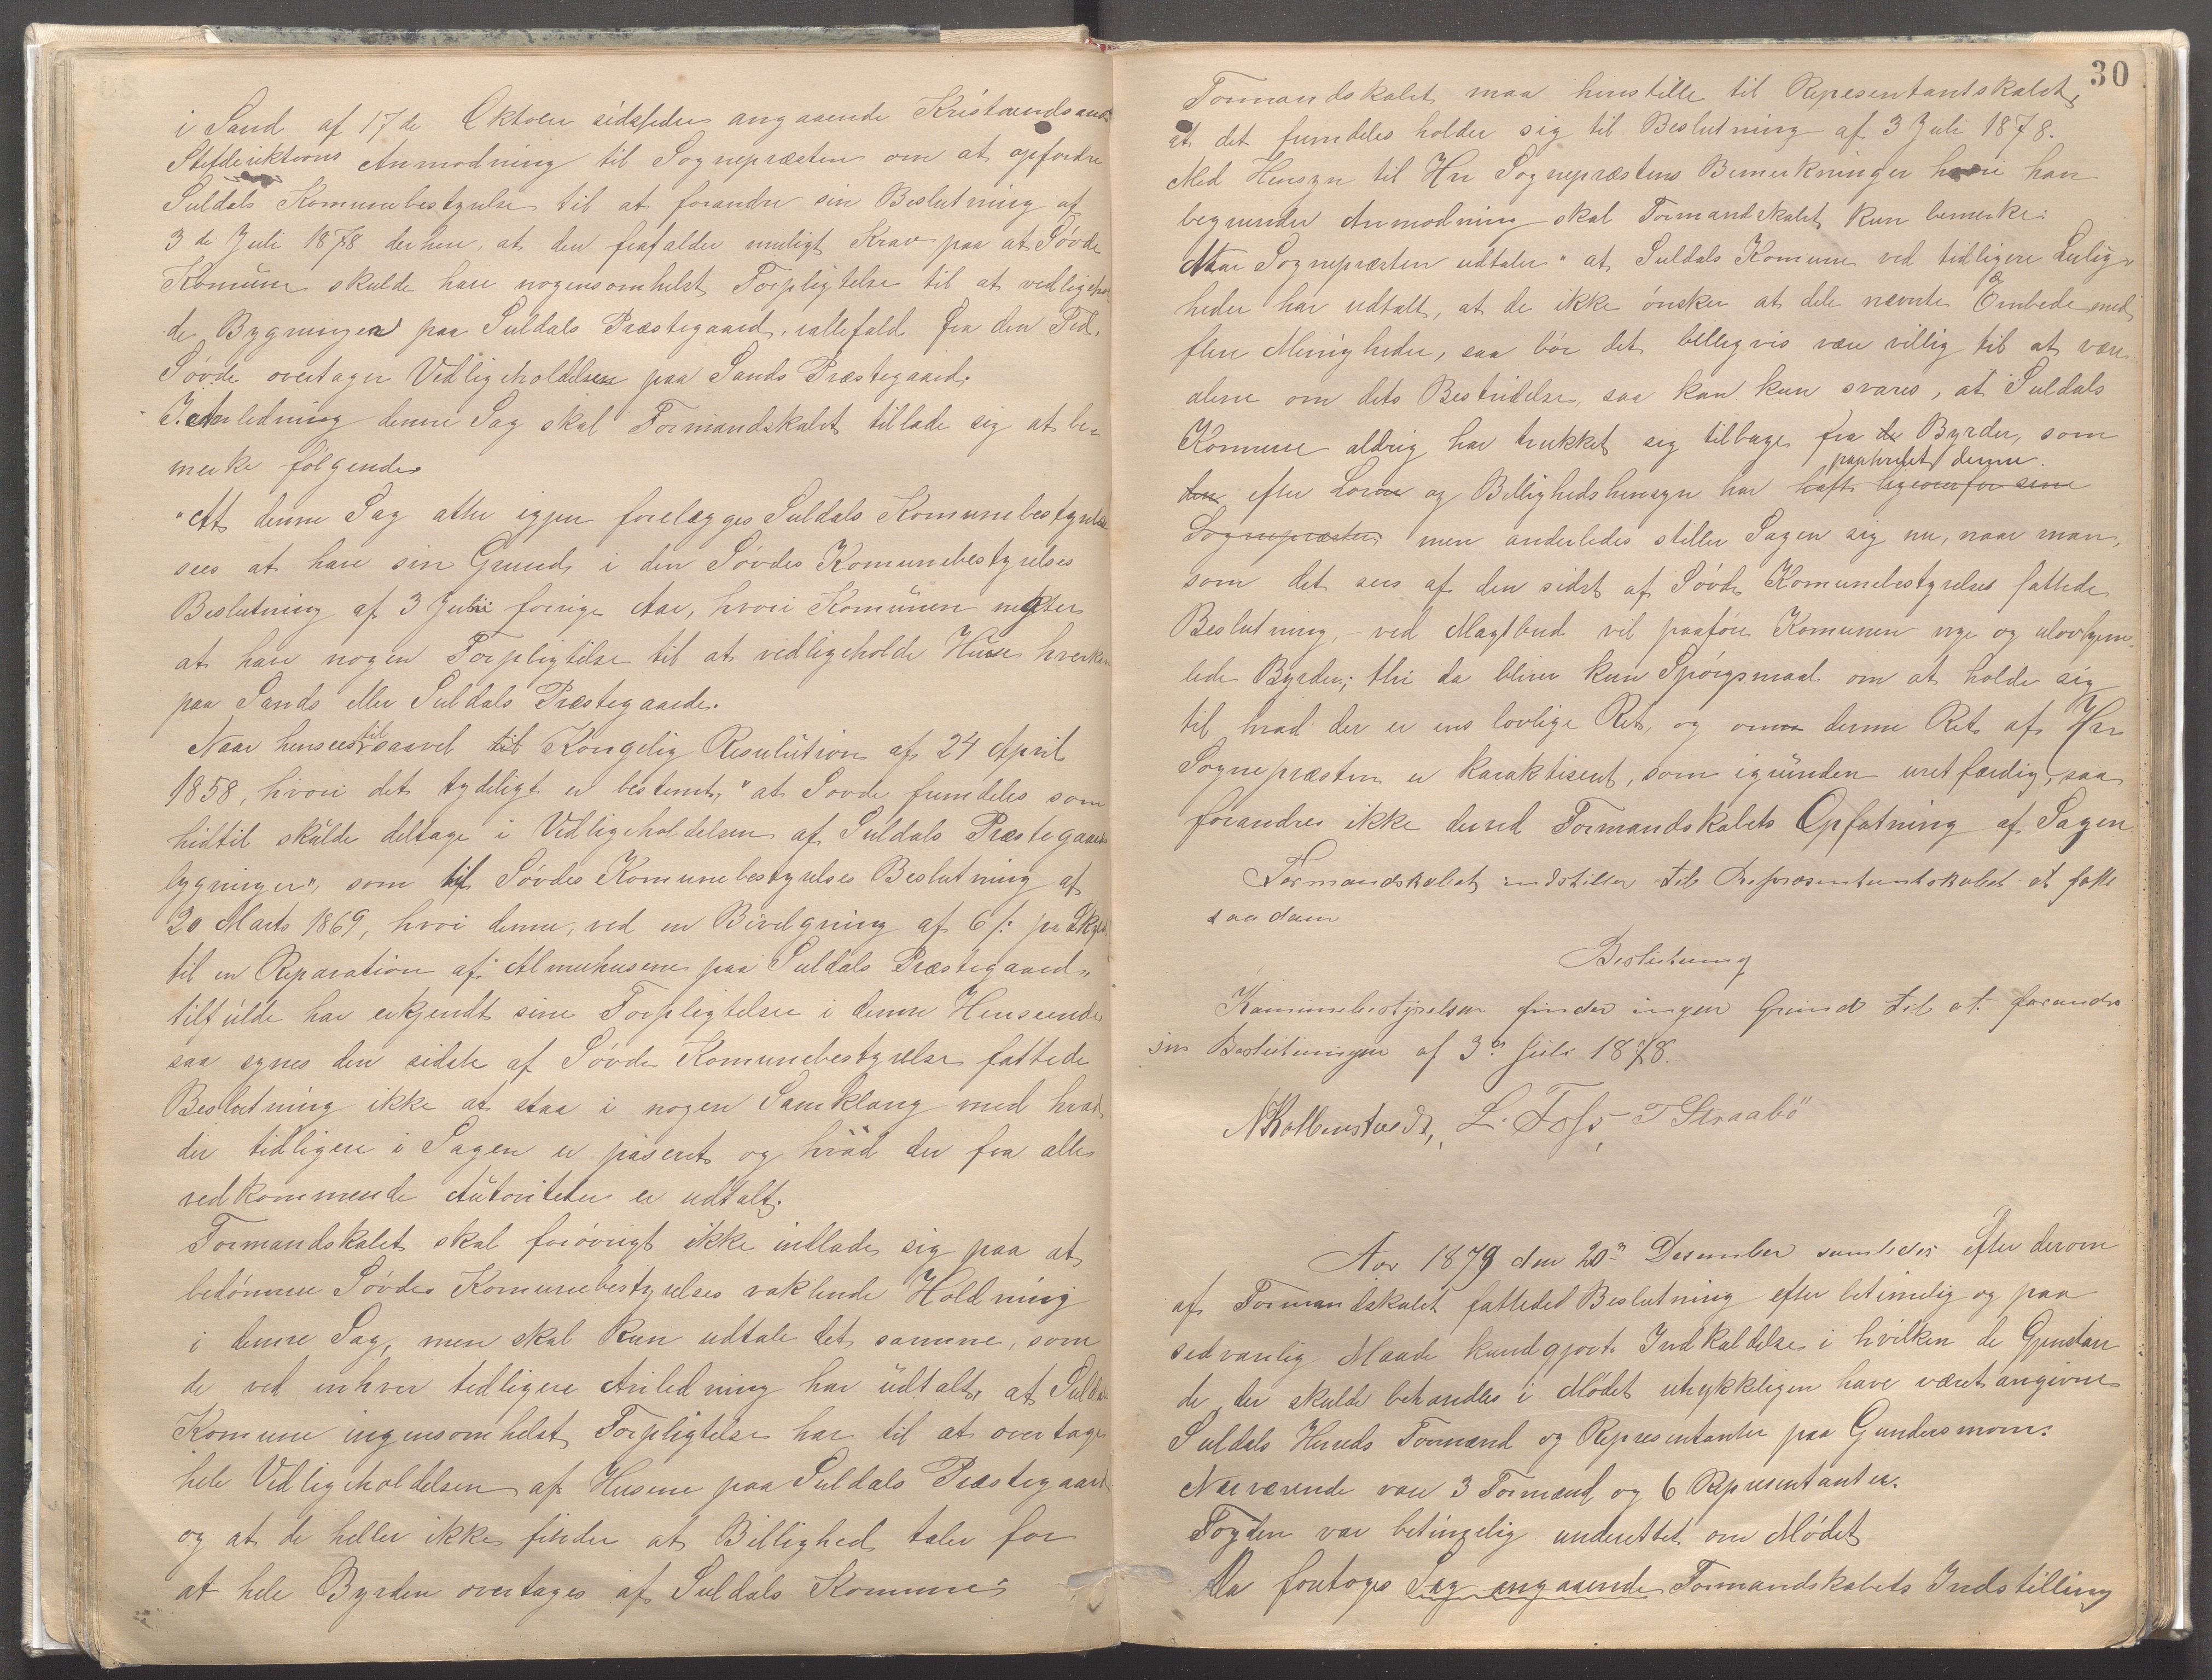 i Sand af 17de Oktober sidstleden angaaende Kristiansands
Stiftdirektions Anmodning til Sognepræsten om at opfordre
Suldals Komunebestyrelse til at forandre sin Beslutning af
3de Juli 1878 derhen, at den frafalder muligt Krav paa at Søvde
Komune skulde have nogensomhelst Forpligtelse til at vedligehol
de Bygninger paa Suldals Præstegaard, iallefald fra den Tid,
Søvde overtager Vedligeholdelsen paa Sands Præstegaard.
I Anledning denne Sag skal Formandskabet tillade sig at be-
merke følgende
"At denne Sag atter igjen forelægges Suldals Komunebestyrelse
sees at have sin Grund i den Søvdes Komunebestyrelses
Beslutning af 3 Juli forrige Aar, hvori Komunen negter
at have nogen Forpligtelse til at vedligeholde Huse hverken
paa Sands eller Suldals Præstegaarde.
Naar hensees til saavel til Kongelig Resulution af 24 April
1858, hvori det tydeligt er bestemt, "at Sovde fremdeles som
hidtil skulde deltage i Vedligeholdelsen af Suldals Præstegaards
bygninger", som til Søvdes Komunebestyrelses Beslutning af
20 Marts 1869, hvori denne, ved en Bevilgning af 6 /: pr Skyld
til en Reparation af "Almuehusene paa Suldals Præstegaard"
tilfulde har erkjendt sine Forpligtelser i denne Henseende
saa synes den sidste af Søvde Komunebestyrelse fattede
Beslutning ikke at staa i nogen Samklang med hvad
der tidligere i Sagen er paseret og hvad der fra alle
vedkommende Autoriteter er udtalt.
Formandskabet skal forøvrigt ikke indlade sig paa at
bedømme Søvdes Komunebestyrelses vaklende Holdning
i denne Sag, men skal kun udtale det samme, som
de ved enhver tidligere Anledning har udtalt, at Suldals
Komune ingensomhelst Forpligtelse har til at overtage
hele Vedligeholdelsen af Husene paa Suldals Præstegaard
og at de heller ikke finder at Billighed taler for
at hele Byrden overtages af Suldals Komune.
30
Formandskabet maa henstille til Represententskabet,
at det fremdeles holder sig til Beslutning af 3 Juli 1878.
Med Hensyn til Hrr Sognepræstens Bemerkninger hvori han
begrunder Anmodning skal Formandskabet kun bemerke:
Naar Sognepræsten udtaler "at Suldals Komune ved tidligere Leilig-
heder har udtalt, at de ikke ønsker at dele nævnte Embede med
flere Menigheder, saa bør det billigvis være villig til at være
alene om dets Bestridelse, saa kan kun svares, at Suldals
Komune aldrig har trukket sig tilbage fra de Byrder, som
paahvilet denne.
den efter Loven og Billighedshensyn har haft ligeoverfor sine
Sognepræster, men anderledes stiller Sagen sig nu, naar man,
som det sees af den sidst af Søvde Komunebestyrelses fattede
Beslutning, - ved Magtbud vil paaføre Komunen nye og ulovhjem-
lede Byrder; thi da bliver kun Spørgsmaal om at holde sig
til hvad der er ens lovlige Ret, og om denne Ret af Hrr
Sognepræsten er karaktiseret, som igrunden uretfærdig, saa
forandres ikke derved Formandskabets Opfatning af Sagen.
Formandskabet indstiller til Representantskabet at fatte
saadan
Beslutning
Komunebestyrelsen finder ingen Grund til at forandre
sin Beslutningen af 3de Juli 1878.
N Kolbenstvedt, L. Foss, T Straabø
Aar 1879 den 20de Desember samledes Efter derom
af Formandskabet fattedes Beslutning efter betimelig og paa
sedvanlig Maade kundgjort Indkaldelse i hvilken de Gjenstan
de der skulde behandles i Mødet utrykkeligen have været angivne
Suldals Hereds Formænd og Representanter paa Gundersmom.
Nærværende vare 3 Formænd og 6 Representanter.
Fogden var betimelig underettet om Mødet
Da foretoges Sag angaaende Formandskabets Indstilling